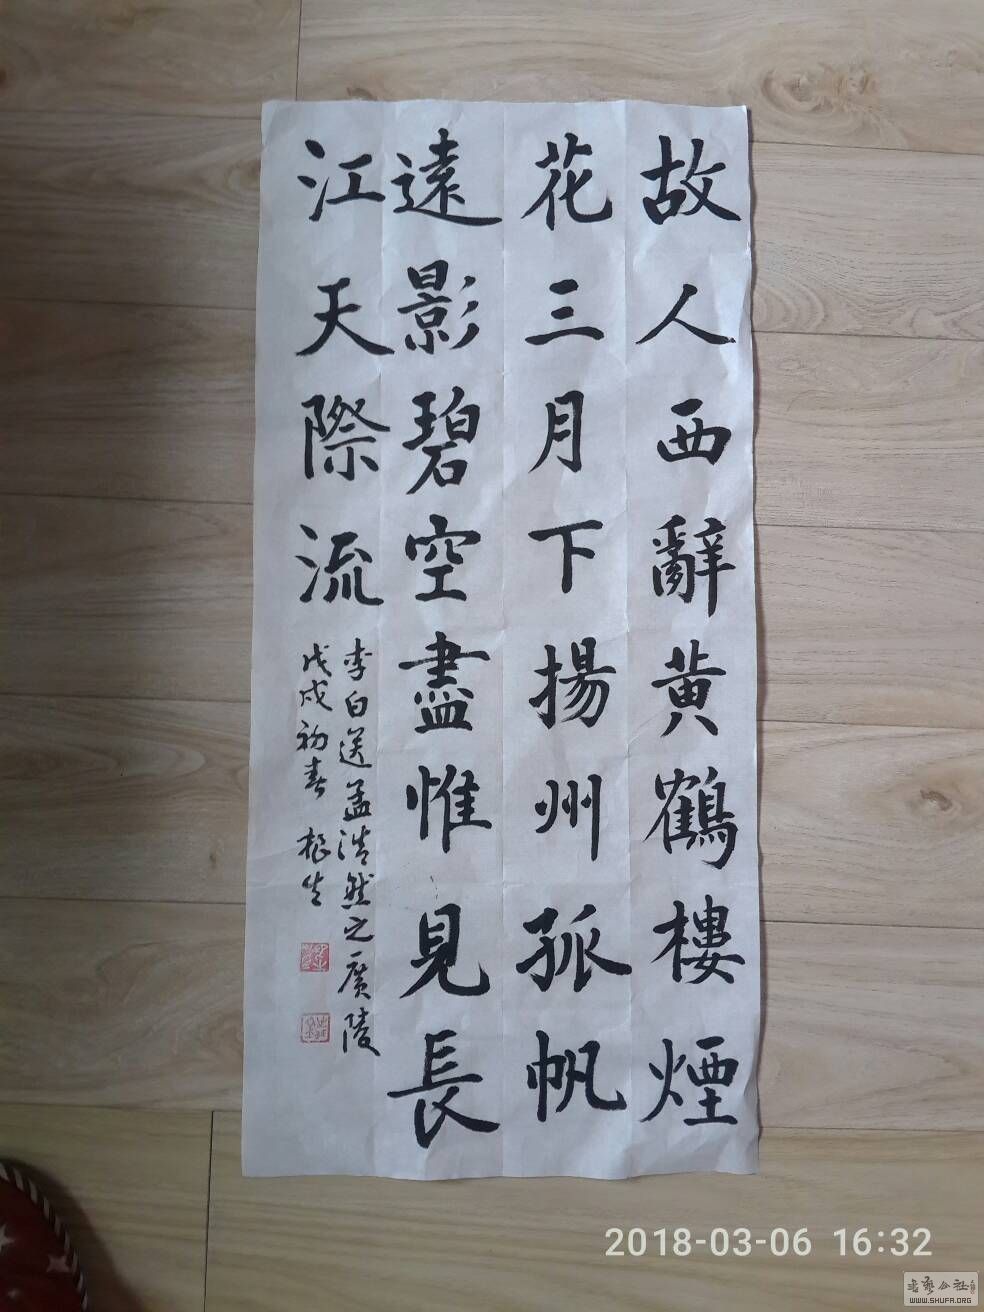 故人西辭黄鶴樓煙
花三月下揚州孤帆
遠影碧空盡惟見長
江天際流
李白送孟浩然之廣陵
戊戌初春 根生
2018-03-06 16:32
WWW.SHUFA.ORG